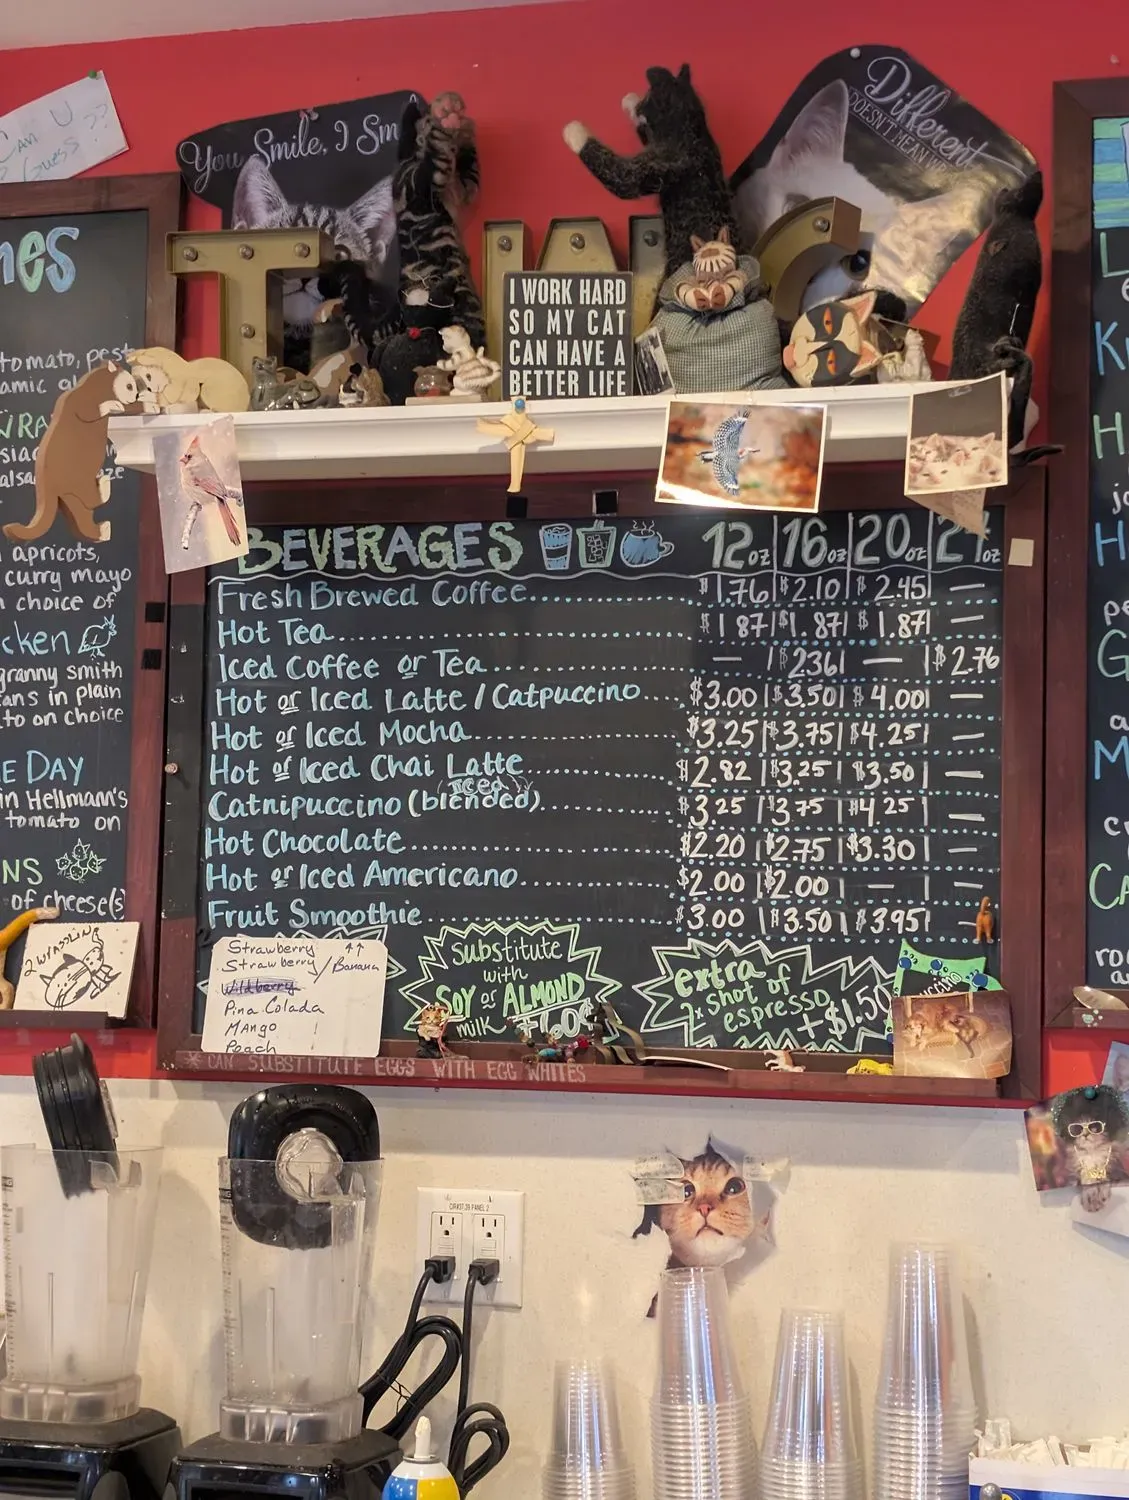 CAN U
Guess??
You Smile, I Sm
Different
DOESN'T MEAN
T W C
I WORK HARD
SO MY CAT
CAN HAVE A
BETTER LIFE
tomato, pest
amic gl
WRA
apricots,
curry mayo
choice of
cken
granny smith
ans in plain
to on choice
E DAY
in Hellmann's
tomato on
NS
of cheese(s)
BEVERAGES 12oz 16oz 20oz 24oz
Fresh Brewed Coffee $1.76 $2.10 $2.45 —
Hot Tea $1.87 $1.87 $1.87 —
Iced Coffee or Tea — $2.36 — $2.76
Hot or Iced Latte / Catpuccino $3.00 $3.50 $4.00 —
Hot or Iced Mocha $3.25 $3.75 $4.25 —
Hot or Iced Chai Latte $2.82 $3.25 $3.50 —
Iced
Catnipuccino (blended) $3.25 $3.75 $4.25 —
Hot Chocolate $2.20 $2.75 $3.30 —
Hot or Iced Americano $2.00 $2.00 — —
Fruit Smoothie $3.00 $3.50 $3.95 —
Strawberry
Strawberry/Banana
Wildberry
Pina Colada
MAngo
Peach
Substitute
with
SOY or ALMOND
milk +.60¢
extra
shot of
espresso
+$1.50
* CAN SUBSTITUTE EGGS WITH EGG WHITES
CIRKT.39 PANEL 2